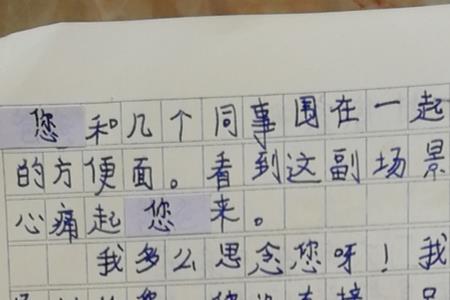 您和几个同事围在一起
的方便面。看到这副场景
心痛起您来。
我多么思念您呀！我